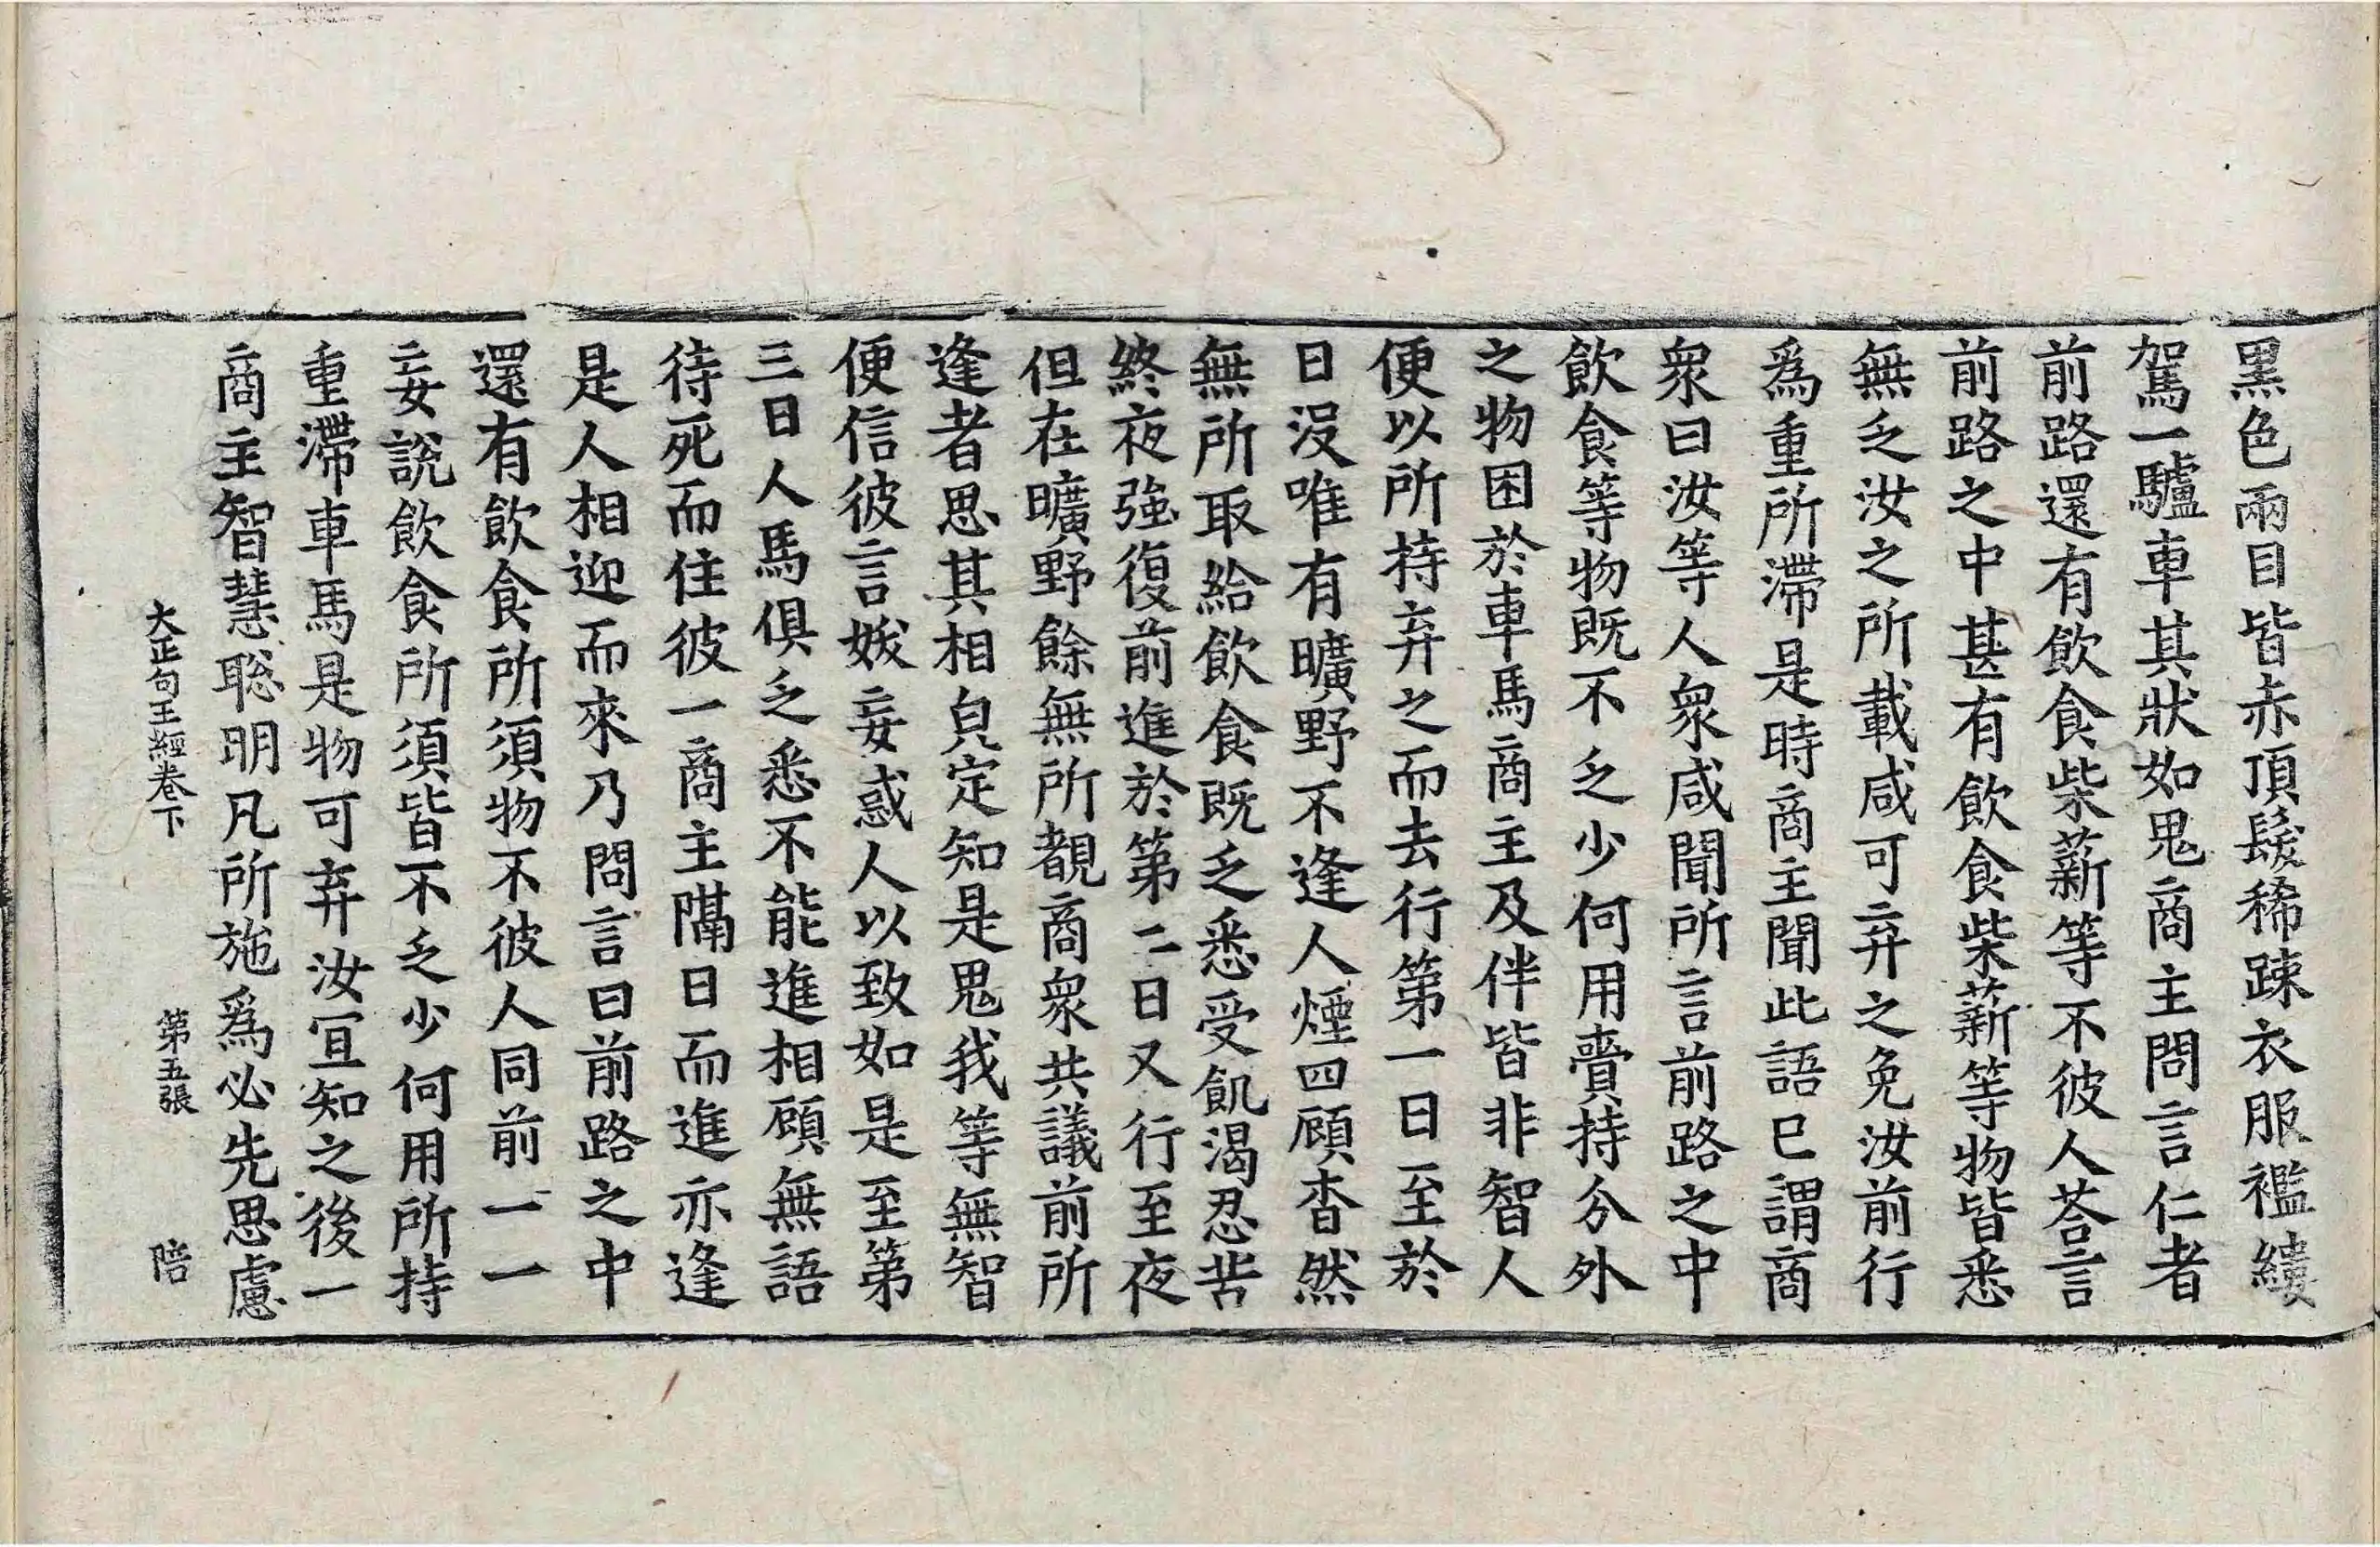 黑色兩目皆赤頂髮稀踈衣服襤縷
駕一驢車其狀如鬼商主問言仁者
前路還有飲食柴薪等不彼人荅言
前路之中甚有飲食柴薪等物皆悉
無乏汝之所載咸可弃之免汝前行
爲重所滯是時商主聞此語已謂商
衆曰汝等人衆咸聞所言前路之中
飲食等物既不乏少何用賷持分外
之物困於車馬商主及伴皆非智人
便以所持弃之而去行第一日至於
日没唯有曠野不逢人煙四顧杳然
無所取給飲食既乏悉受飢渴忍苦
終夜強復前進於第二日又行至夜
但在曠野餘無所覩商衆共議前所
逢者思其相皃定知是鬼我等無智
便信彼言妭妄惑人以致如是至第
三日人馬俱乏悉不能進相顧無語
待死而住彼一商主隔日而進亦逢
是人相迎而來乃問言曰前路之中
還有飲食所須物不彼人同前一一
妄說飲食所須皆不乏少何用所持
重滯車馬是物可弃汝冝知之後一
商主智慧聡明凡所施爲必先思慮
大正句王經卷下 第五張 陪